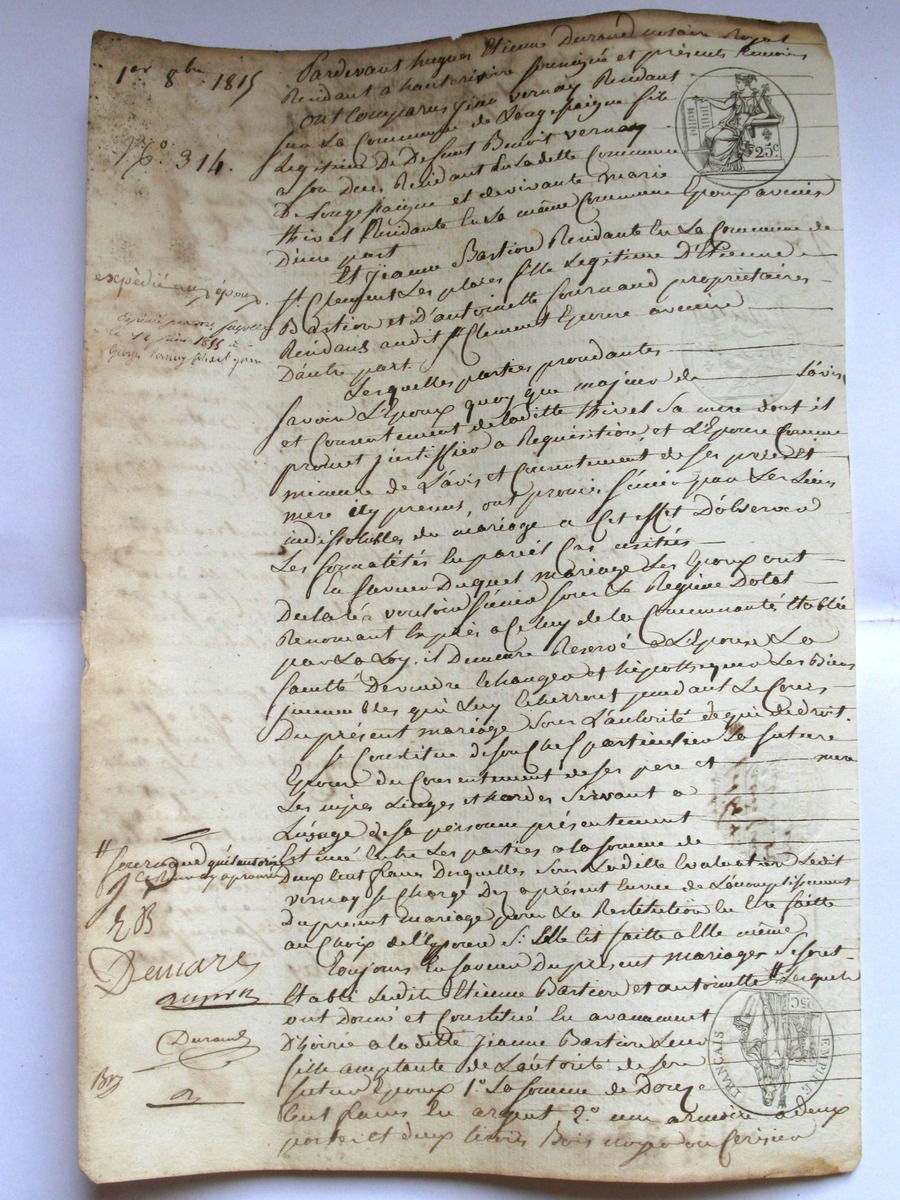 1er 8bre 1815
No. 314.
expédié aux époux.
Pardevant hugues Etienne Durand notaire Royal
Rendant a hauterivoire soussigné et présents temoins
ont Comparus jean Vernay Rendant
sur La Commune de Longessaigne fils
Legitime De Defunt Benoit Vernay
a son deces Rendant En Ladette Commune
de Longessaigne et de vivante Marie
thivet Rendante En La même Commune Epoux avenir
D'une part
Et jeanne Bastion Rendante En La Commune de
St Clement Les places fille Legitime D'Etienne
Bastion et D'antoinette fournand propriétaires
Rendans audit St Clement Epouse avenire
D'autre part
Lesquelles parties procedantes
savoir L'Epoux quoy que majeur de L'avis
et Consentement de Laditte thivet Sa mere dont il
promet justiffier a Requisition, et L'Epouse Comme
mineure de L'avis et Consentement de ses pere et
mere icy presens, ont promis s'unir par Les Liens
indissolubles du mariage a Cet effet D'observer
Les formalités En pareil Cas usitées
En faveur Duquel mariage Les Epoux ont
Declarés vouloir s'unir sous Le Regime Dotal
Renoncant Exprès a Celuy de la Communauté Etablie
par La Loy, il Demeure Reservé a L'Epouse La
faculté De vendre Echanger et hipothequer Les Biens
immeubles qui Luy Echerront pendant Le Cours
Du présent mariage sous L'autorité de qui de droit.
se Constitue de son Chef particulier La future
Epouse du Consentement de ses pere et mere
Les nipes Linges et hardes servant a
L'usage de sa personne présentement
Estimé Entre Les parties a la somme de
Deux Cent francs Desquelles sous Laditte Evaluation Ledit
Vernay se Charge Des aprésent En vue de L'accomplissement
Du present mariage pour La Restitution En Etre faitte
au Choix de L'Epouse Si Elle Est faitte a Elle même.
Toujours En faveur Du present mariage Se sont
Etabli Ledit Etienne Bastion et antoinette # Lesquels
ont Donné et Constitué En avancement
D'hoirie a la ditte jeanne Bastion Leur
fille acceptante de L'autorité de son
futur Epoux 1o La somme de Douze
Cent francs En argent 2o une armoire a deux
portes et deux tiroirs Bois noyer ou Cerisier
# fournand qu'il autorise
EB
Demare
Durand
25c
EMPIRE FRANCAIS
25C